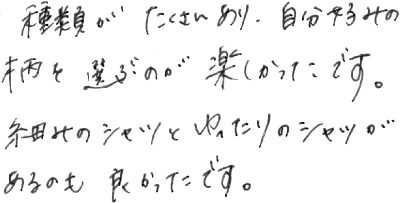 種類が たくさんあり、自分好みの
柄を 選ぶのが 楽しかったです。
細みのシャツと ゆったりのシャツが
あるのも 良かったです。